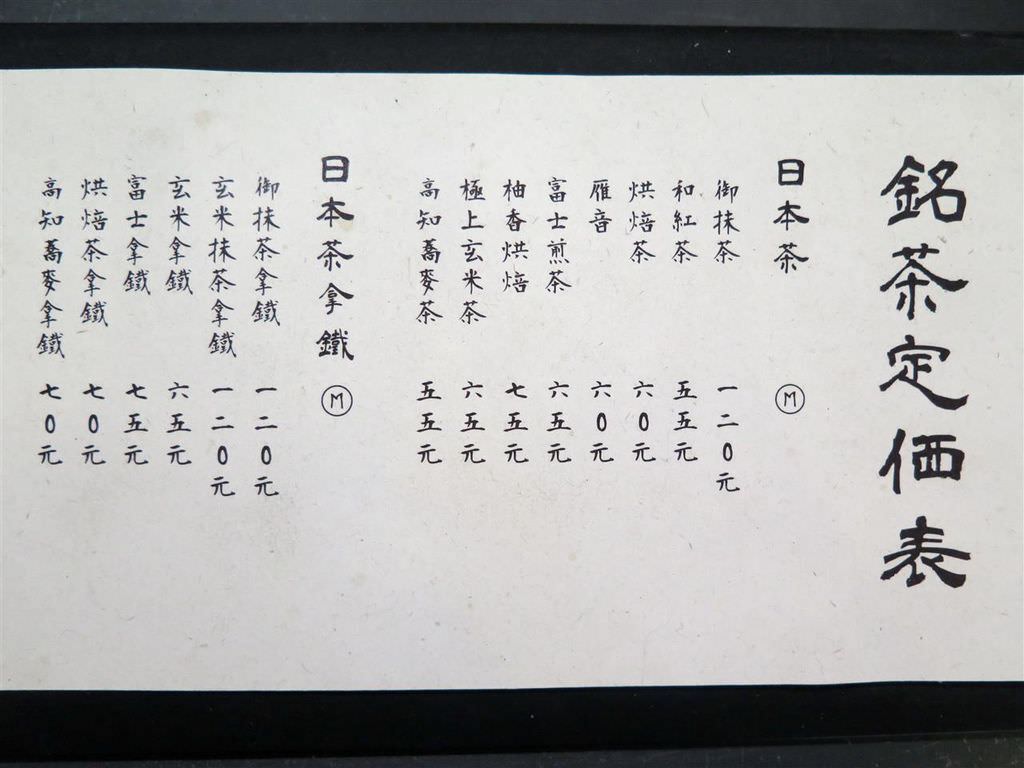 銘茶定価表
日本茶 M
御抹茶 一二0元
和紅茶 五五元
烘焙茶 六0元
雁音 六0元
富士煎茶 六五元
柚香烘焙 七五元
極上玄米茶 六五元
高知蕎麥茶 五五元
日本茶拿鐵 M
御抹茶拿鐵 一二0元
玄米抹茶拿鐵 一二0元
玄米拿鐵 六五元
富士拿鐵 七五元
烘焙茶拿鐵 七0元
高知蕎麥拿鐵 七0元